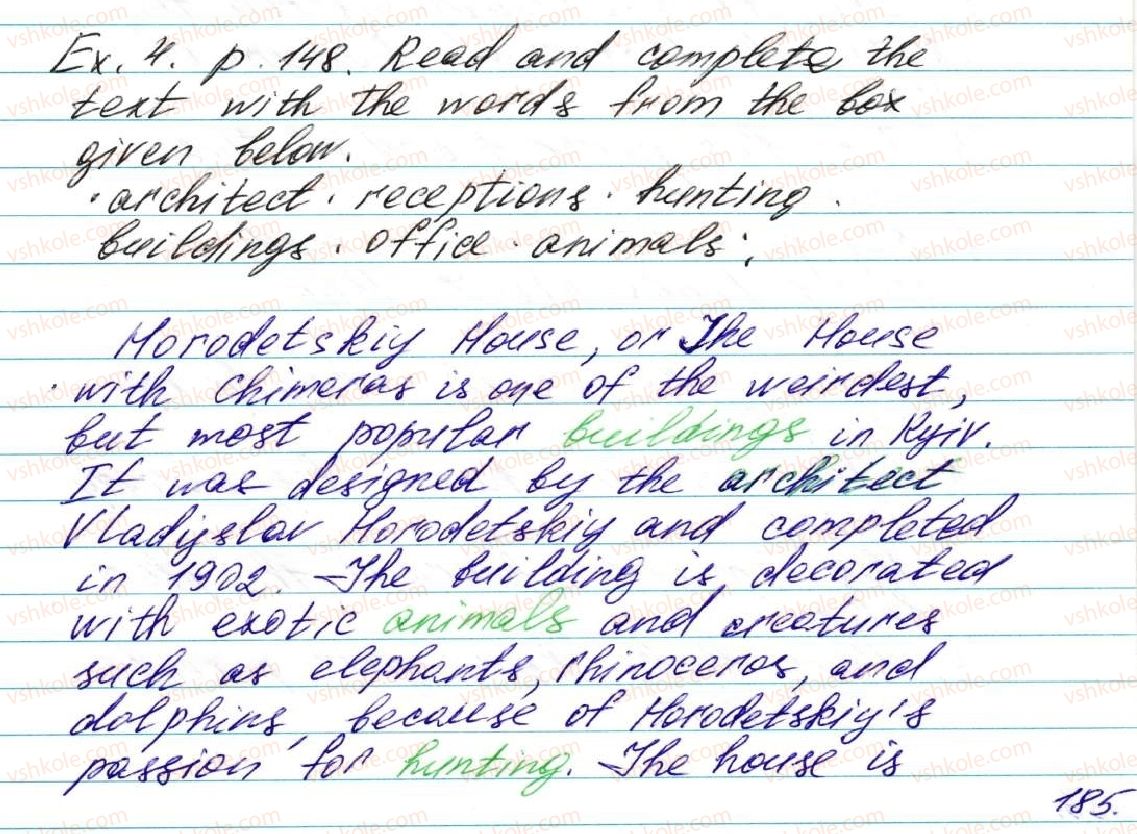 Ex. 4. p. 148. Read and complete the
text with the words from the box
given below.
· architect · receptions · hunting ·
buildings · office · animals;
Horodetskiy House, or The House
with Chimeras is one of the weirdest,
but most popular buildings in Kyiv.
It was designed by the architect
Vladyslav Horodetskiy and completed
in 1902. The building is decorated
with exotic animals and creatures
such as elephants, rhinoceros, and
dolphins, because of Horodetskiy's
passion for hunting. The house is
185.
vshkole.com